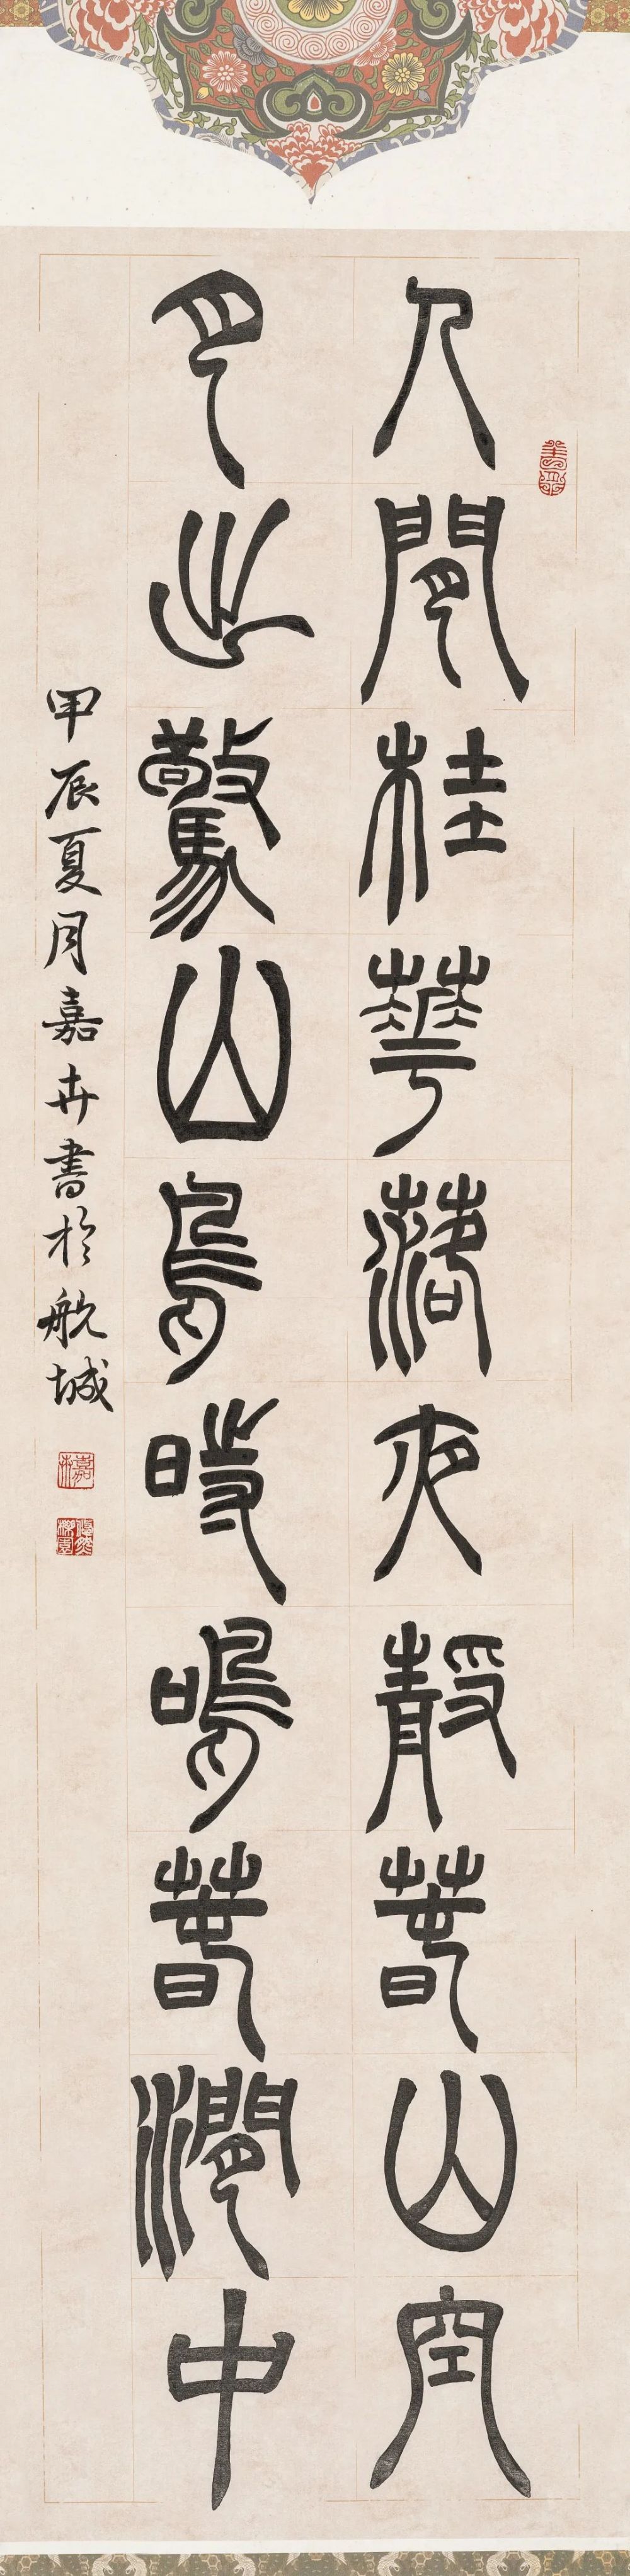 人閒桂華落夜靜萅山空
月出驚山鳥時鳴萅澗中
甲辰夏月嘉卉書於航城
嘉卉